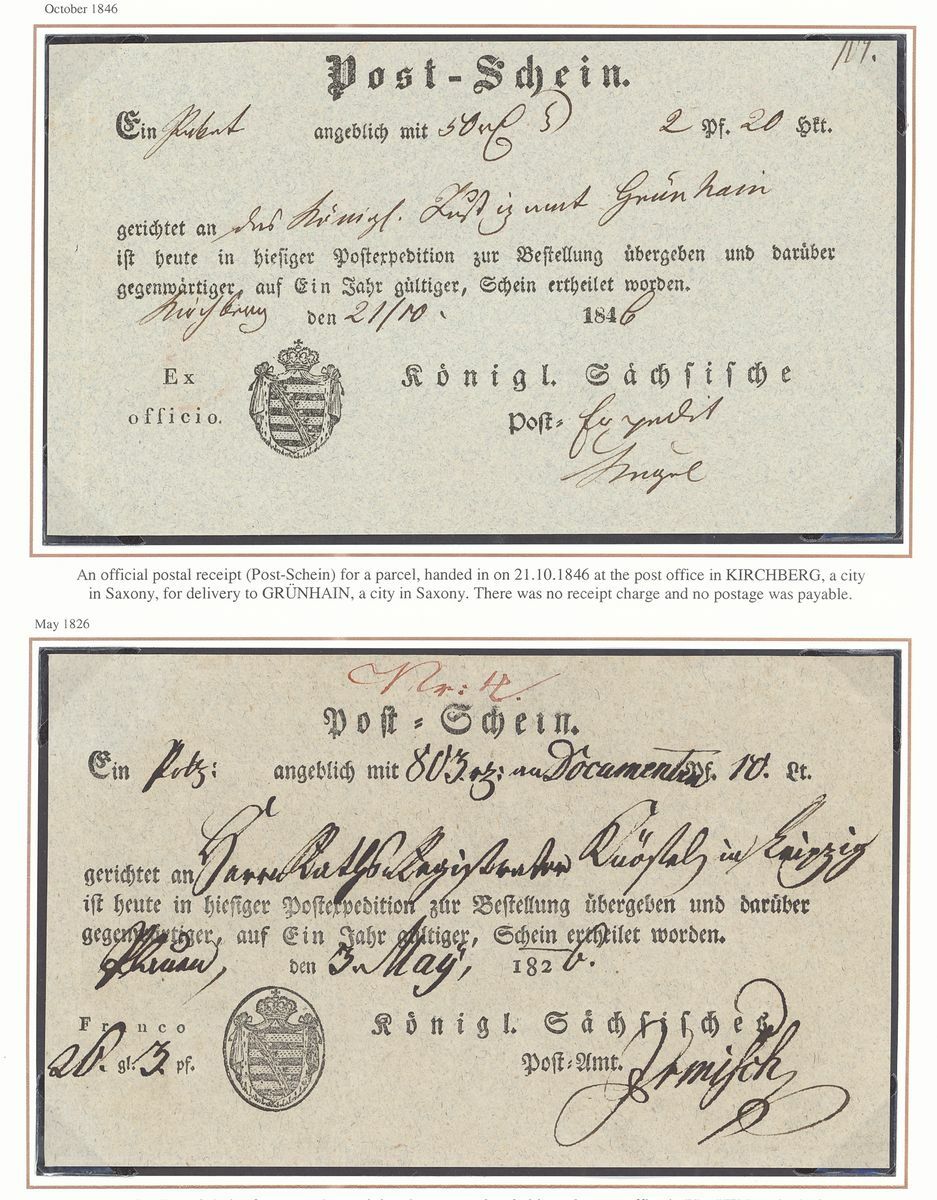 October 1846
117.
Post-Schein.
Ein Paket angeblich mit 50 2 Pf. 20 Hkt.
gerichtet an das Königl. Justizamt Grünhain
ist heute in hiesiger Postexpedition zur Bestellung übergeben und darüber
gegenwärtiger, auf Ein Jahr gültiger, Schein ertheilet worden.
Kirchberg den 21/10. 1846
Ex officio.
Königl. Sächsische
Post- Expedit
An official postal receipt (Post-Schein) for a parcel, handed in on 21.10.1846 at the post office in KIRCHBERG, a city
in Saxony, for delivery to GRÜNHAIN, a city in Saxony. There was no receipt charge and no postage was payable.
May 1826
Nr: 4.
Post-Schein.
Ein angeblich mit 803 rtz: an Documenten Pf. 10. Lt.
gerichtet an Herrn Raths Registrator in Leipzig
ist heute in hiesiger Postexpedition zur Bestellung übergeben und darüber
gegenwärtiger, auf Ein Jahr gültiger, Schein ertheilet worden.
Plauen, den 3. May, 1826.
Franco
gl. 3. pf.
Königl. Sächsisches
Post-Amt. Irmisch